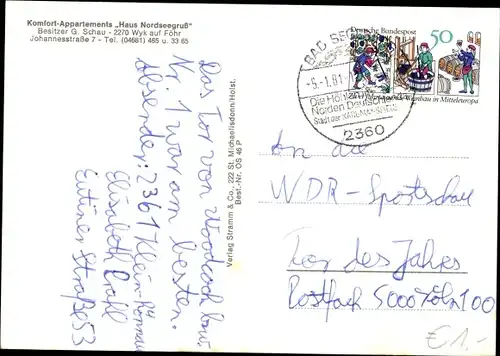 Komfort-Appartements „Haus Nordseegruß"
Besitzer G. Schau - 2270 Wyk auf Föhr
Johannesstraße 7 - Tel. (04681) 465 u. 33 65
Das Tor von Woodcock bzw.
Nr. 1 war am besten.
Absender: 2361 Klein Rönnau
Elisabeth
Eutiner Straße 53
Verlag Stramm & Co., 222 St. Michaelisdonn/Holst.
Best.-Nr. OS 46 P
BAD SEG
-5.-1.81
Die Höhlen
Norden Deutschlands
Stadt der KARL-MAY-SPIELE
2360
Deutsche Bundespost
50
Weinbau in Mitteleuropa
An die
WDR-Sportschau
Tor des Jahres
Postfach 5000 Köln 100
€ 1.-